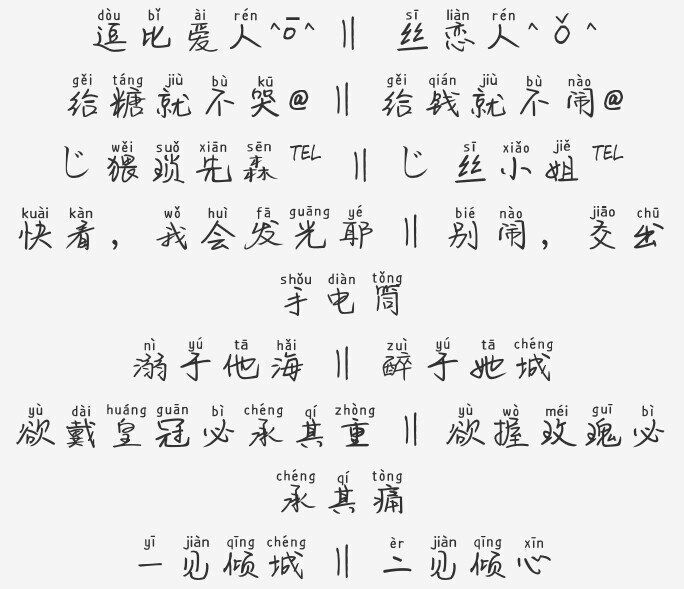 dòu bǐ ài rén sī liàn rén
逗比爱人^ō^ || 丝恋人^ǒ^
gěi táng jiù bù kū gěi qián jiù bù nào
给糖就不哭@ || 给钱就不闹@
wěi suǒ xiān sēn sī xiǎo jiě
じ猥琐先森TEL || じ丝小姐TEL
kuài kàn wǒ huì fā guāng yé bié nào jiāo chū
快看，我会发光耶 || 别闹，交出
shǒu diàn tǒng
手电筒
nì yú tā hǎi zuì yú tā chéng
溺于他海 || 醉于她城
yù dài huáng guān bì chéng qí zhòng yù wò méi guī bì
欲戴皇冠必承其重 || 欲握玫瑰必
chéng qí tòng
承其痛
yī jiàn qīng chéng èr jiàn qīng xīn
一见倾城 || 二见倾心